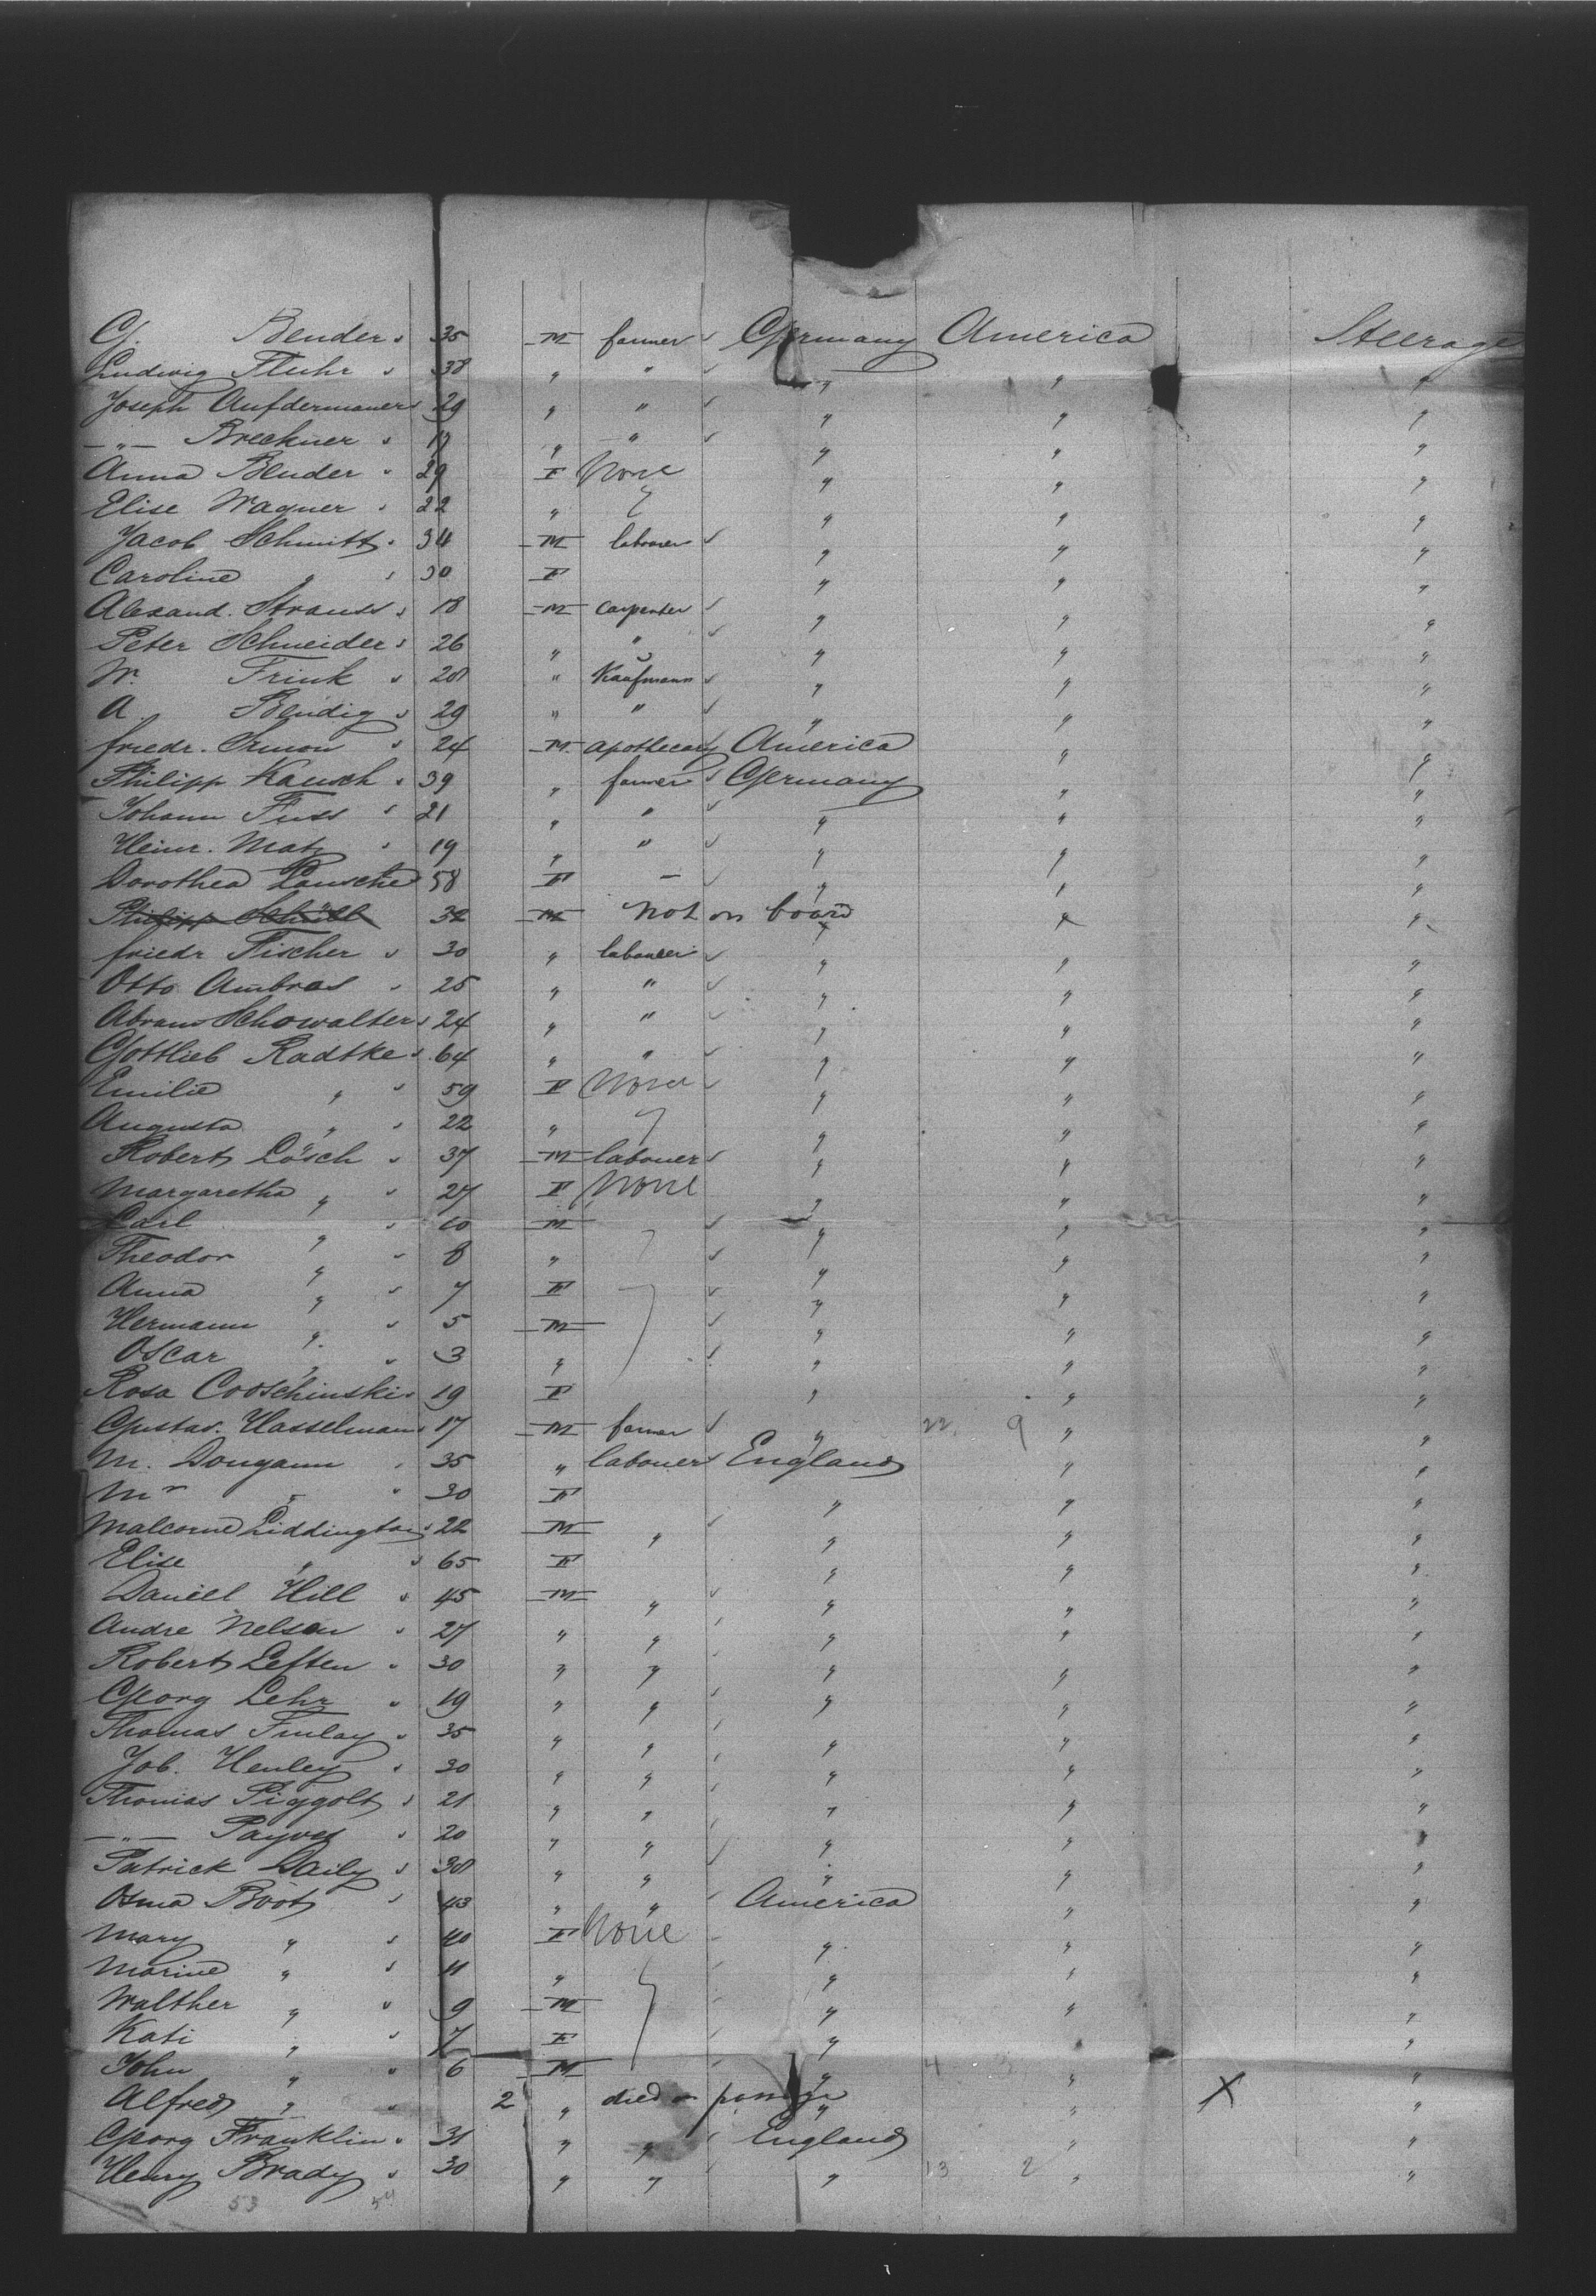 G. Bender 35 M farmer Germany America Steerage
Ludwig Fluhr 38 " " " " "
Joseph Aufdermauer 29 " " " " "
—"— Breckner 19 " " " " "
Anna Bender 29 F None " " "
Elise Wagner 22 " " " "
Jacob Schmitt 34 M labourer " " "
Caroline " 30 F " " "
Alexand. Strauss 18 M carpenter " " "
Peter Schneider 26 " " " " "
W. Frink 28 " Kaufmann " " "
A. Bendig 29 " " " " "
friedr. Simon 24 M. apothecary America " "
Philipp Kausch 39 " farmer Germany " "
Johann Fuss 21 " " " " "
Heinr. Matz 19 " " " " "
Dorothea Lausche 58 F — " " "
Philipp Schüll 32 M not on board " " "
friedr Fischer 30 " labouer " " "
Otto Ambras 25 " " " " "
Abram Schowalter 24 " " " " "
Gottlieb Radtke 64 " " " " "
Emilie " 59 F None " " "
Augusta " 22 " " " "
Robert Lösch 37 M labouer " " "
Margaretha " 27 F None " " "
Carl " 10 M " " "
Theodor " 8 " " " "
Anna " 7 F " " "
Hermann " 5 M " " "
Oscar " 3 " " " "
Rosa Cooschinski 19 F " " "
Gustav. Hasselmann 17 M farmer " 22. 9 " "
M. Dougann 35 " labouer England " "
Mr " 30 F " " "
Malcome Liddington 22 M " " " "
Elise " 65 F " " "
Daniel Hill 45 M " " " "
Andre Nelsen 27 " " " " "
Robert Leften 30 " " " " "
Georg Lehr 19 " " " " "
Thomas Finlay 35 " " " " "
Job. Henley 30 " " " " "
Thomas Piggolt 21 " " " " "
—"— 20 " " " " "
Patrick Daily 38 " " " " "
Osma Boot 43 " " America " "
Mary " 40 F None " " "
Marine " 11 " " " "
Walther " 9 M " " "
Kati " 7 F " " "
John " 6 M " 4 " "
Alfred " 2 " died on passage " " X "
Georg Franklin 31 " " England " "
Henry Brady 30 " " " 13 2 " "
53 54